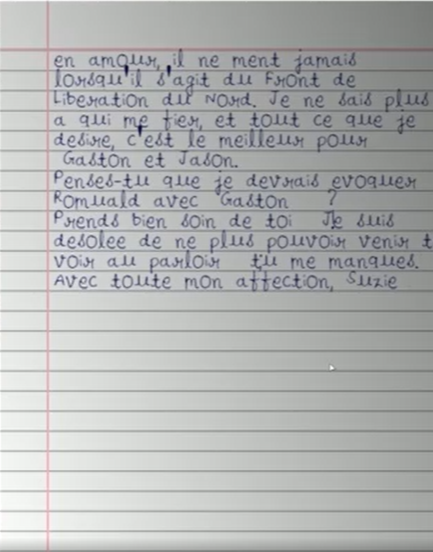 en amour, il ne ment jamais
lorsqu'il s'agit du Front de
Liberation du Nord. Je ne sais plus
a qui me fier, et tout ce que je
desire, c'est le meilleur pour
Gaston et Jason.
Penses-tu que je devrais evoquer
Romuald avec Gaston ?
Prends bien soin de toi Je suis
desolee de ne plus pouvoir venir t
voir au parloir tu me manques.
Avec toute mon affection, Suzie